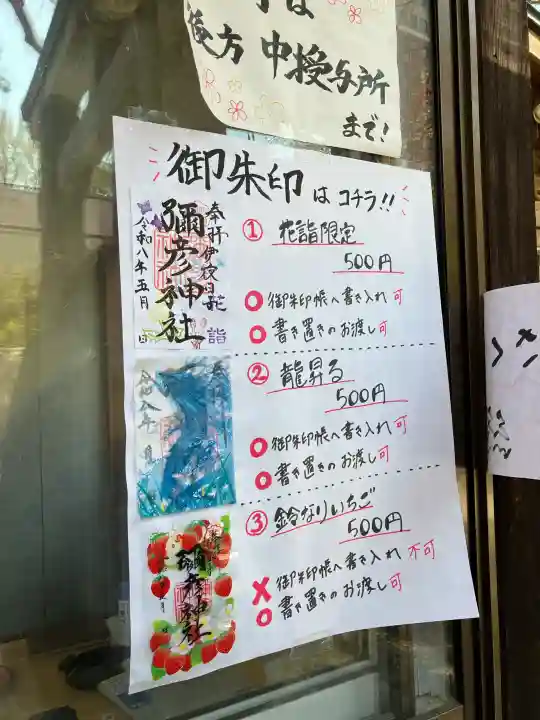 後方 中授与所
まで!
御朱印はコチラ!!
奉拝 伊夜日子 花詣
彌彦神社
令和八年五月 日
① 花詣限定
500円
○ 御朱印帳へ書き入れ 可
○ 書き置きのお渡し 可
令和八年 月
② 龍昇る
500円
○ 御朱印帳へ書き入れ 可
○ 書き置きのお渡し 可
彌彦神社
③ 鈴なりいちご
500円
× 御朱印帳へ書き入れ 不可
○ 書き置きのお渡し 可